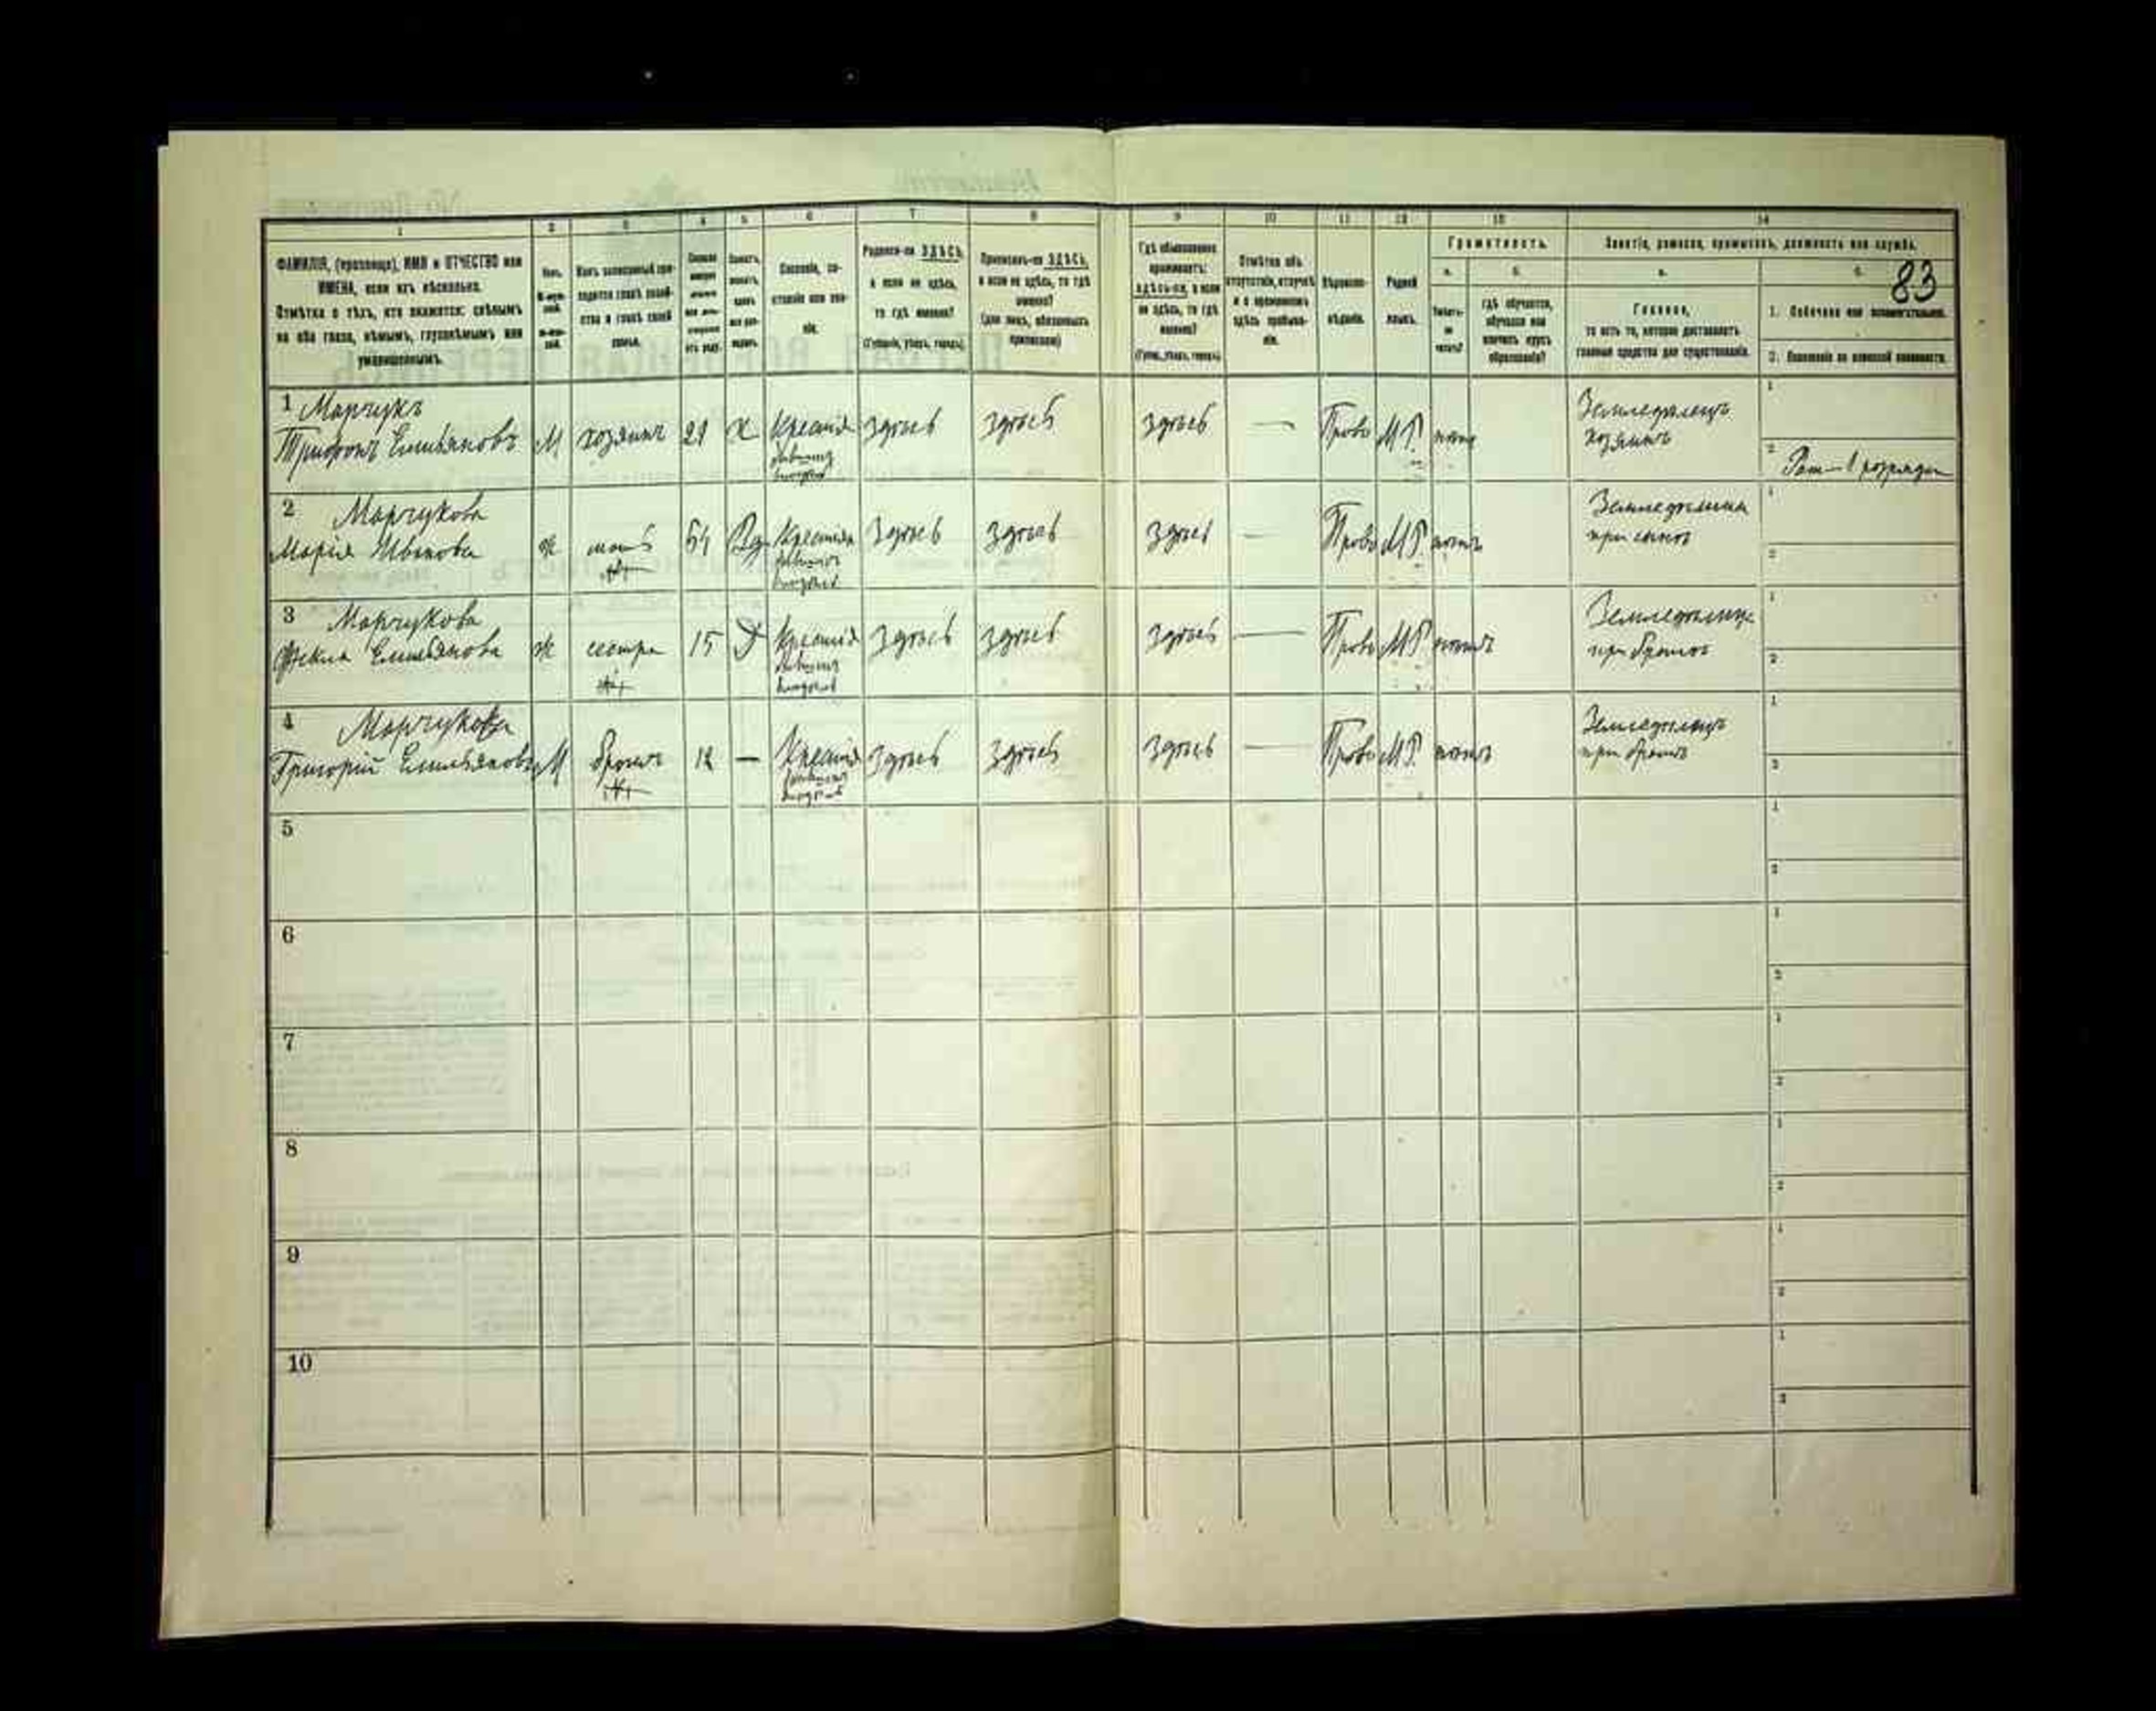 83
1 2 3 4 5 6 7 8 9 10 11 12 13 14
ФАМИЛІЯ, (прозвище), ИМЯ и ОТЧЕСТВО или
ИМЕНА, если ихъ нѣсколько.
Отмѣтка о тѣхъ, кто окажется: слѣпымъ
на оба глаза, нѣмымъ, глухонѣмымъ или
умалишеннымъ.
Сословіе, со-
стояніе или зва-
ніе.
Родился-ли ЗДѢСЬ,
а если не здѣсь,
то гдѣ именно?
(Губернія, уѣздъ, городъ)
Приписанъ-ли ЗДѢСЬ,
а если не здѣсь, то гдѣ
именно?
(для лицъ, обязанныхъ
припискою)
Гдѣ обыкновенно
проживаетъ:
здѣсь-ли, а если
не здѣсь, то гдѣ
именно?
(Губер., уѣздъ, городъ)
Отмѣтка объ
отсутствіи, отлучкѣ
и о временномъ
здѣсь пребыва-
ніи.
Вѣроиспо-
вѣданіе.
Родной
языкъ.
Грамотность.
а. б.
Умѣетъ-
ли
читать?
гдѣ обучается,
обучался или
кончилъ курсъ
образованія?
Занятіе, ремесло, промыселъ, должность или служба.
а. б.
Главное,
то есть то, которое доставляетъ
главныя средства для существованія.
1. Побочное или вспомогательное.
2. Положеніе по воинской повинности.
1 Марчукъ
Трифонъ Емельяновъ М хозяинъ 21 Х Крестья здѣсь здѣсь здѣсь — Право М.Р. Земледѣлецъ
хозяинъ
1
2 Рат— 1 розряда
2 Марчукова
Марія Иванова ж мать 54 Вд Крестьян здѣсь здѣсь здѣсь — Право М.Р. нѣтъ Земледѣлица
при сынѣ
1
2
3 Марчукова
Фекла Емельянова ж сестра 15 Д Крестья здѣсь здѣсь здѣсь — Право М.Р. нѣтъ Земледѣлица
при братѣ
1
2
4 Марчукова
Григорій Емельяновъ М братъ 12 — Крестья здѣсь здѣсь здѣсь — Право М.Р. нѣтъ Земледѣлецъ
при братѣ
1
2
5
1
2
6
1
2
7
1
2
8
1
2
9
1
2
10
1
2